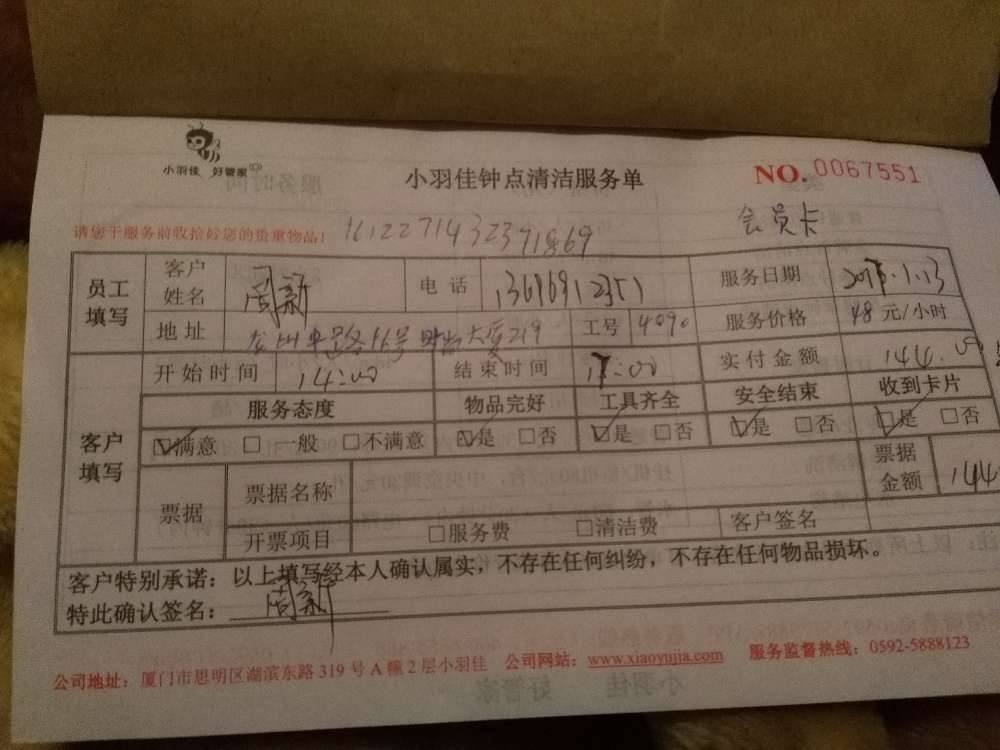 小羽佳 好管家
小羽佳钟点清洁服务单
NO. 0067551
会员卡
请您于服务前收拾好您的贵重物品！
员工填写 客户姓名 周新 电话 服务日期
地址 工号 4090 服务价格 48 元/小时
开始时间 14:00 结束时间 17:00 实付金额 144.00
客户填写 服务态度 物品完好 工具齐全 安全结束 收到卡片
☑满意 □一般 □不满意 ☑是 □否 ☑是 □否 ☑是 □否 ☑是 □否
票据 票据名称 票据金额 144
开票项目 □服务费 □清洁费 客户签名
客户特别承诺：以上填写经本人确认属实，不存在任何纠纷，不存在任何物品损坏。
特此确认签名：周新
公司地址：厦门市思明区湖滨东路319号A幢2层小羽佳 公司网站：www.xiaoyujia.com 服务监督热线：0592-5888123